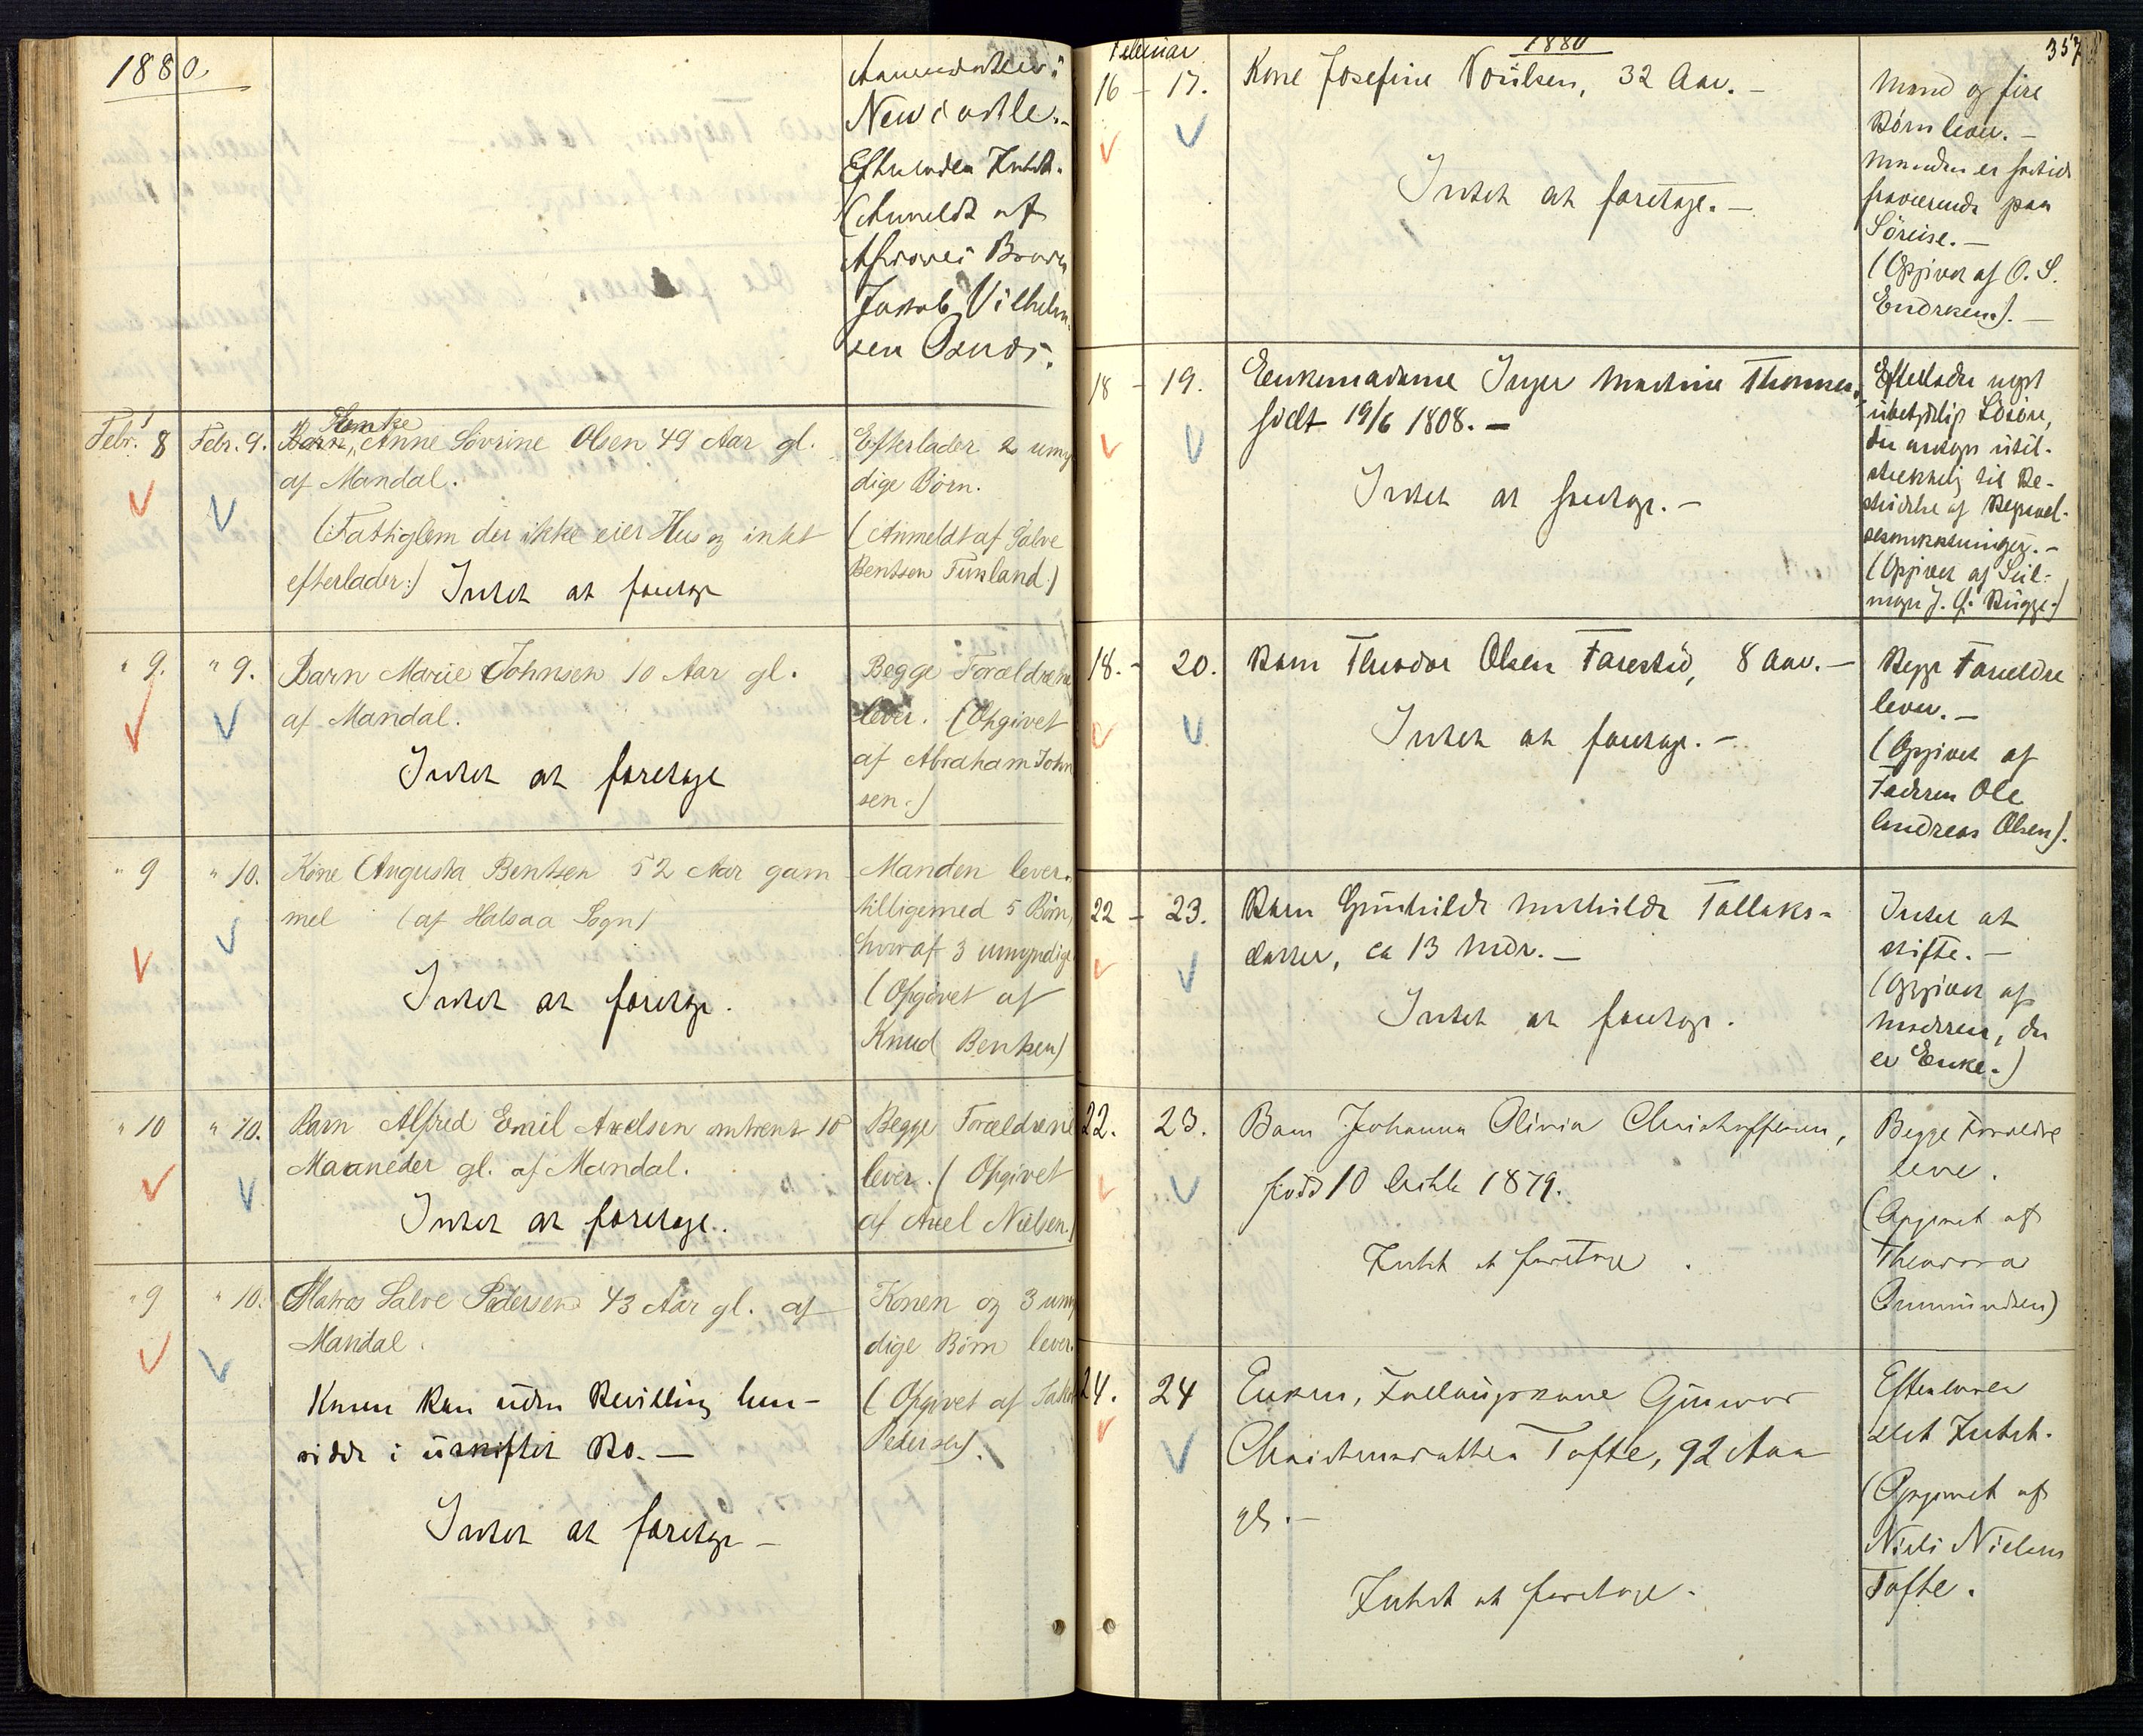 1880.
Newcastle.-
Efterlader Intet.
(Anmeldt af
Jakob Vilhelm-
sen
Febr. 8 Febr. 9. Enke
Barn, Anne Sövrine Olsen 49 Aar gl.
af Mandal.
(Fattiglem der ikke eier Hus og intet
efterlader:) Intet at foretage
Efterlader 2 umyn
dige Børn.
(Anmeldt af Salve
Bentsen Fuskland.)
" 9. " 9. Barn Marie Johnsen 10 Aar gl.
af Mandal.
Intet at foretage
Begge Forældrene
lever. (Opgivet
af Abraham John
sen.)
" 9 " 10. Kone Augusta Bentsen 52 Aar gam
mel (af Halsaa Sogn)
Intet at foretage.
Manden lever.
tilligemed 5 Børn,
hvoraf 3 umyndige
(Opgivet af
Knud Bentsen)
" 10 " 10. Barn Alfred Emil Axelsen omtrent 10
Maaneder gl. af Mandal.
Intet at foretage.
Begge Forældrene
lever. (Opgivet
af Axel Nielsen.)
" 9 " 10. Matros Salve Pedersen 43 Aar gl. af
Mandal.
Konen kan uden Bevilling hen-
sidde i uskiftet Bo.-
Intet at foretage-
Konen og 3 umyn
dige Børn lever.
(Opgivet af Jakob
Pedersen).
Februar 1880 357
16 - 17. Kone Josefine Poulsen, 32 Aar.-
Intet at foretage.-
Mand og fire
Børn lever.-
Manden er fortiden
fraværende paa
Söreise.-
(Opgivet af O. S.
Endresen).-
18 - 19. Enkemadame Inger Martine Thomsen,
födt 19/6 1808.-
Intet at foretage.-
Efterlader noget
ubetydelig Lösöre,
der antages util-
strækkelig til Be-
stridelse af Begravel-
sesomkostninger.-
(Opgivet af Seil-
mager J. G. Bugge.)
18. - 20. Barn Theodor Olsen Farestad, 8 Aar.-
Intet at foretage.-
Begge Forældre
lever.-
(Opgivet af
Faderen Ole
Andreas Olsen).
22 - 23. Barn Gunhilde Mathilde Tallaks-
datter, ca 13 Mdr.-
Intet at foretage.
Intet at
skifte.-
(Opgivet af
Moderen, der
er Enke.)
22. 23. Barn Johanna Olivia Christoffersen,
född 10 1879.
Intet at foretage.
Begge Forældre
leve.
(Opgivet af
Theodora
Ommundsen)
24. 24 Enken, Gunvor
Christensdatter Tofte, 92 Aar
gl.-
Intet at foretage.
Efterlader
slet Intet.
(Opgivet af
Niels Nielsen
Tofte.